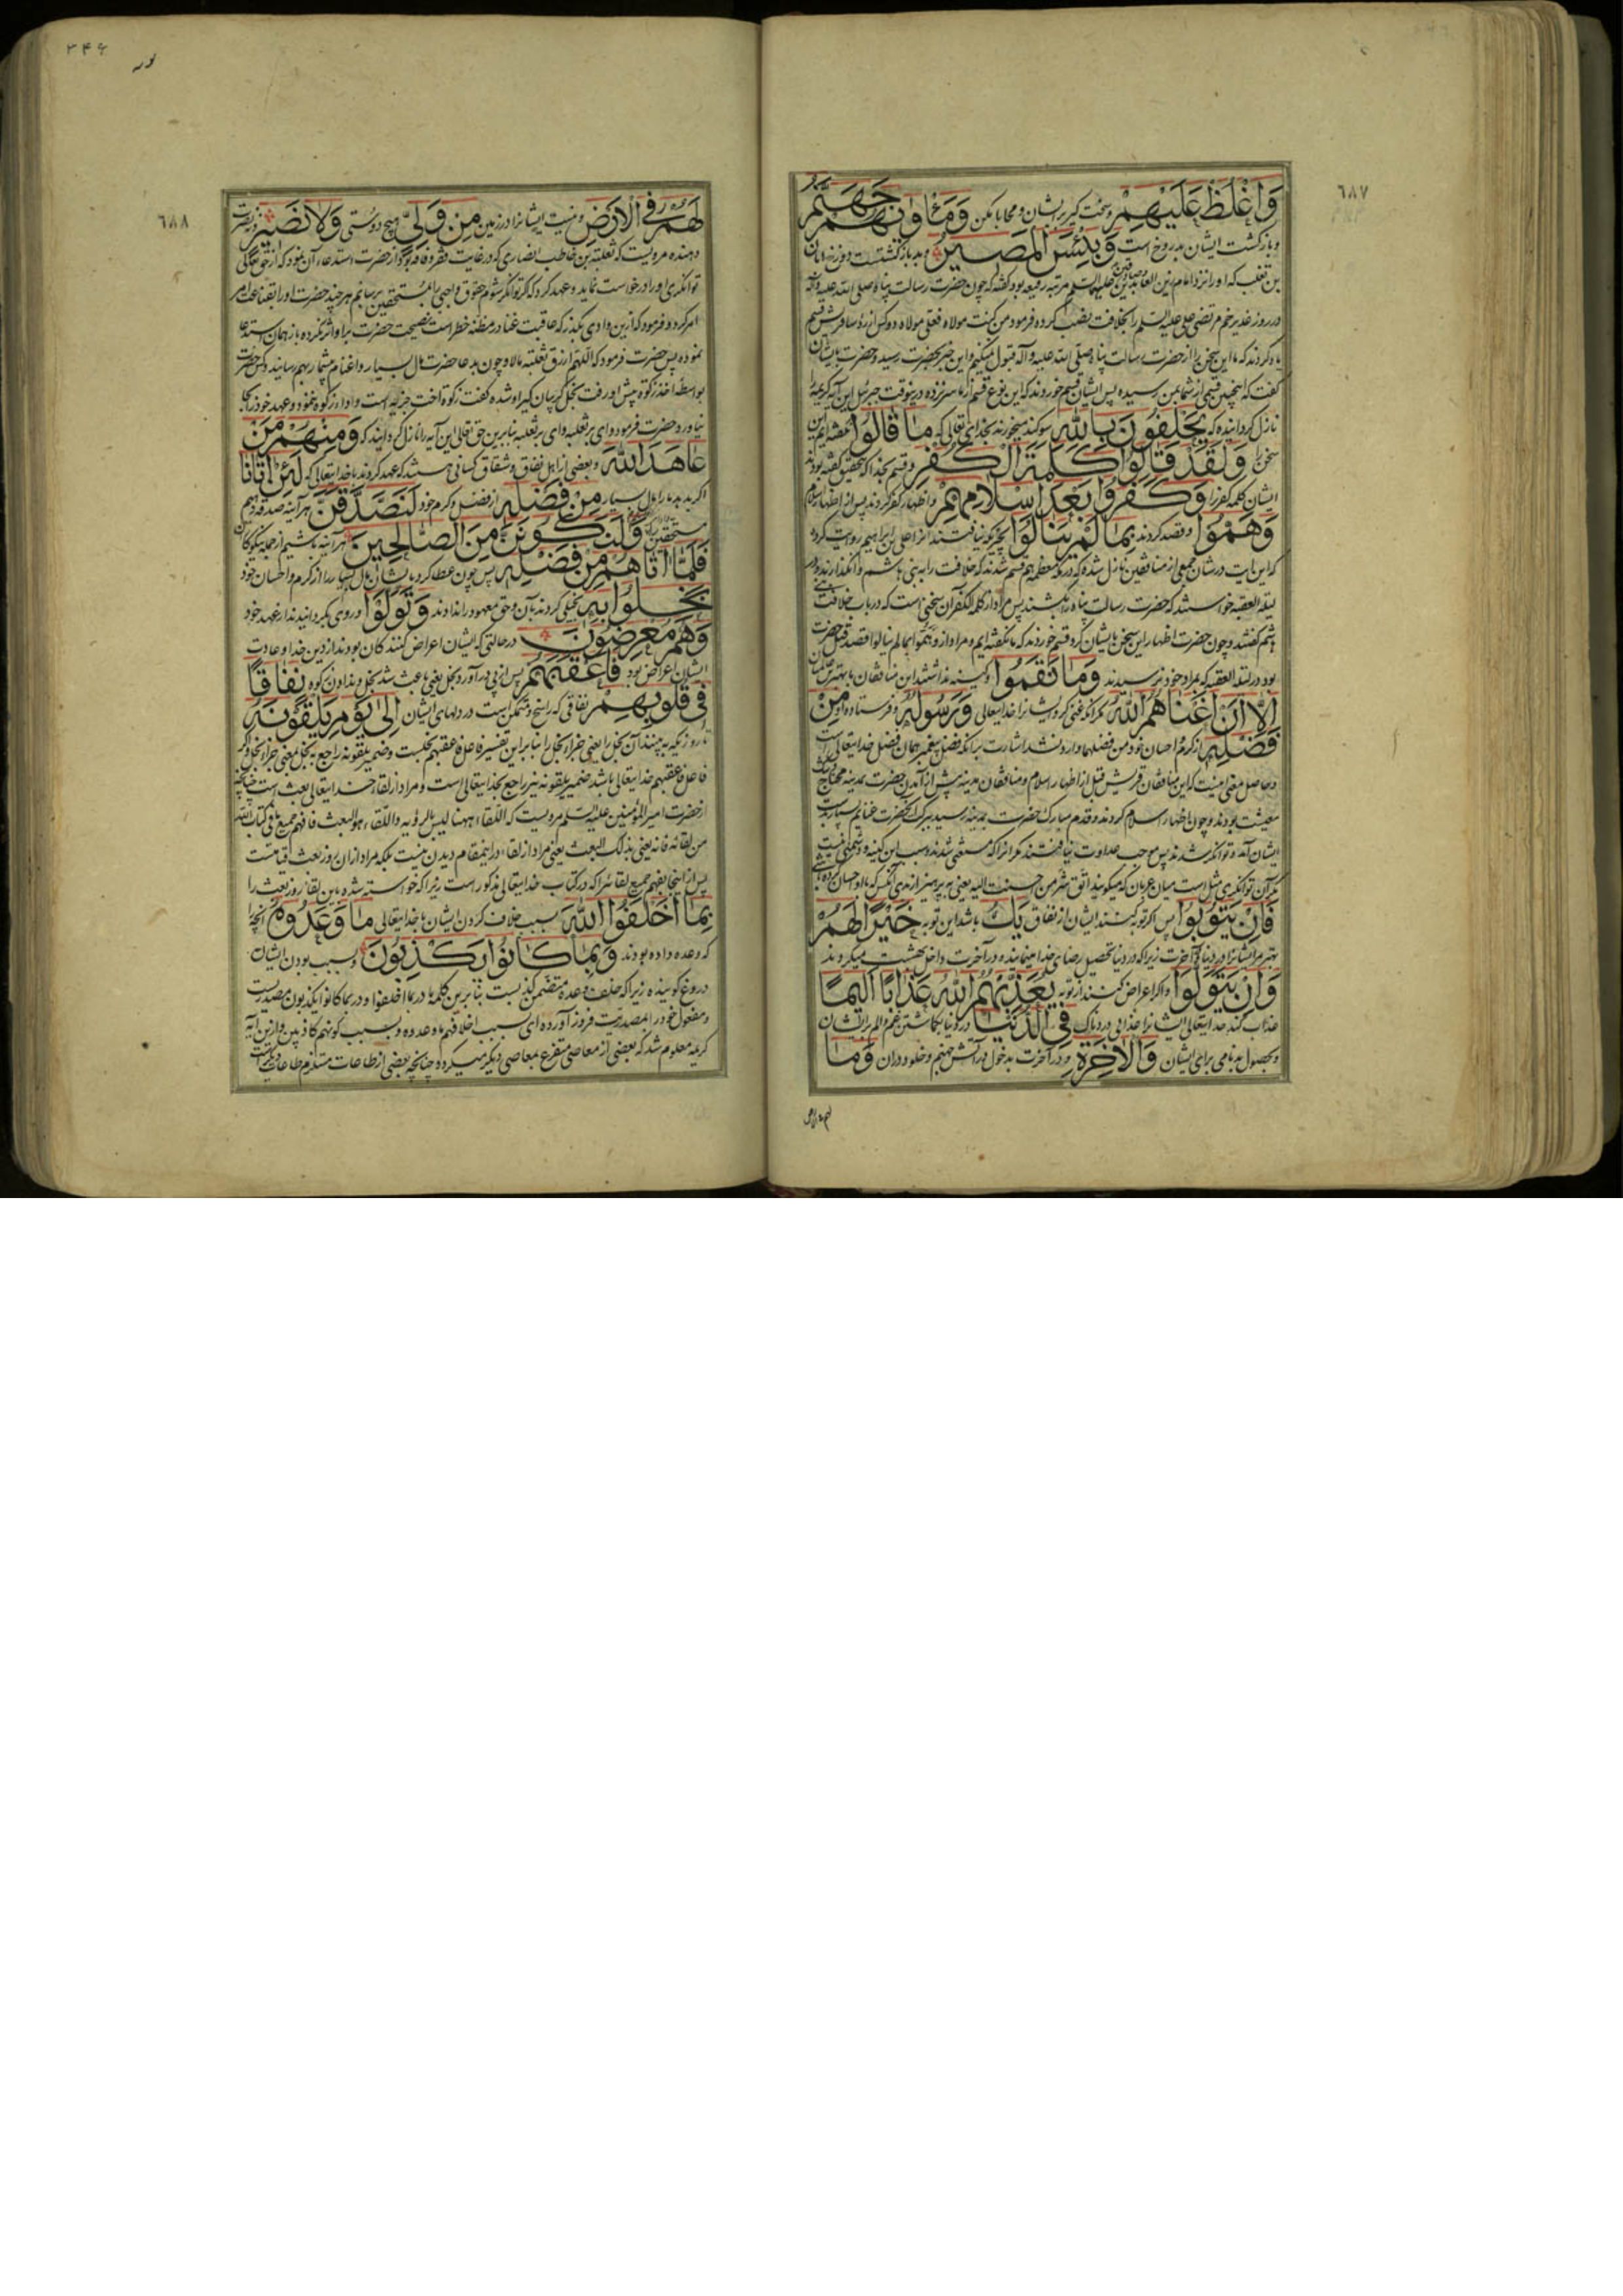 ٦٨٧
وَاغْلُظْ عَلَيْهِمْ و سخت گیر بر ایشان و محابا مکن وَمَأْوٰیهُمْ جَهَنَّمُ
و بازگشت ایشان بدوزخ است وَبِئْسَ الْمَصِيرُ و بد بازگشتست دوزخ ابان
بن تغلب که او را نزد امام زین العابدین علیهم السلم مرتبه رفیعه بود گفته که چون حضرت رسالت پناه صلی الله علیه و آله
در روز غدیر خم مرتضی علی علیه السلم را بخلافت نصب کرده فرمود من کنت مولاه فعلی مولاه دو کس از رؤسا قریش قسم
یاد کردند که ما این سخن را از حضرت رسالت پناه صلی الله علیه و آله قبول نمیکنیم و این خبر بحضرت رسید و حضرت بایشان
گفت که اینچنین قسمی از شما بمن رسیده پس ایشان قسم خوردند که این نوع قسم از ما سر نزده درینوقت جبرئیل این آیه کریمه را
نازل گردانیده که يَحْلِفُونَ بِاللّٰهِ سوگند میخورند بخدای تعالی که مَا قَالُوا نگفته‌ایم این
سخن را وَلَقَدْ قَالُوا كَلِمَةَ الْكُفْرِ و قسم بخدا که بتحقیق گفته بودند
ایشان کلمه کفر را وَكَفَرُوا بَعْدَ اِسْلَامِهِمْ و اظهار کفر کردند پس از اظهار اسلام
وَهَمُّوا و قصد کردند بِمَا لَمْ يَنَالُوا بچیزیکه نیافتند از علی بن ابراهیم روایت کرده
که این آیت در شان جمعی از منافقین نازل شده که در مکه معظمه هم قسم شدند که خلافت را به بنی هاشم وا نگذارند و در
لیلة العقبه خواستند که حضرت رسالت پناه را بکشند پس مراد از کلمة الکفر آن سخنی است که در باب خلافت بنی
هاشم گفتند و چون حضرت اظهار این سخن بایشان کرد قسم خوردند که ما نگفته ایم و مراد از و همّوا بما لم ینالوا قصد قتل حضرت
بود در لیلة العقبه که بمراد خود نرسیدند وَمَا نَقَمُوا و کینه نداشتند این منافقان با پیغمبر و مؤمنان
اِلَّا اَنْ اَغْنَاهُمُ اللّٰهُ مگر آنکه غنی کرد ایشانرا خدایتعالی وَرَسُولُهُ و فرستاده او مِنْ
فَضْلِهِ از کرم و احسان خود و من فضلهما وارد نشد اشارت بر آنکه فضل پیغمبر همان فضل خدایتعالی است
و حاصل معنی اینست که این منافقان قریش قبل از اظهار اسلام و منافقان مدینه پیش از آمدن حضرت بمدینه محتاج
معیشت بودند و چون اظهار اسلام کردند و قدم مبارک حضرت بمدینه رسید ببرکت آنحضرت غنایم بسیار بدست
ایشان آمده توانگر شدند پس موجب عداوت نیافتند مگر آنرا که مستغنی شدند و سبب این کینه و دشمنی نیست
مگر آن توانگری مثل است میان عربان که میگویند اتق شر من احسنت الیه یعنی به پرهیز از بدی آنکس که با او احسان کرده باشی
فَاِنْ يَتُوبُوا پس اگر توبه کنند ایشان از نفاق يَكُ باشد این توبه خَيْرًا لَهُمْ
بهتر مر ایشانرا در دنیا و آخرت زیرا که در دنیا تحصیل رضای خدا مینمایند و در آخرت داخل بهشت میگردند
وَاِنْ يَتَوَلَّوْا و اگر اعراض کنند از توبه يُعَذِّبْهُمُ اللّٰهُ عَذَابًا اَلِيمًا
عذاب کند خدایتعالی ایشانرا عذابی دردناک فِي الدُّنْيَا در دنیا بگماشتن غم و الم بر ایشان
و بحصول بدنامی برای ایشان وَالْاٰخِرَةِ و در آخرت بدخول در آتش جهنم و خلود در آن وَمَا
لهم فی الارض
٣۴۶
٦٨٨
لَهُمْ فِي الْاَرْضِ و نیست ایشانرا در زمین مِنْ وَلِيٍّ هیچ دوستی وَلَا نَصِيرٍ و نه نصرت
دهنده مرویست که ثعلبة بن حاطب انصاری که در غایت فقر و فاقه بود از حضرت استدعاء آن نمود که از حق تعالی
توانگری او را درخواست نماید و عهد کرد که گر توانگر شوم حقوق واجبی را بمستحقین برسانم هر چند حضرت او را بقناعت امر
امر کرد و فرمود که ازین وادی بگذر که عاقبت غنا در مظنه خطر است نصیحت حضرت بر او اثر نکرده باز همان استدعا
نموده پس حضرت فرمود که اللهم ارزق ثعلبه مالا و چون بدعا حضرت مال بسیار و اغنام بیشمار بهم رسانید و کس حضرت
بواسطه اخذ زکوة پیش او رفت بخل گریبان گیر او شده گفت زکوة اخت جزیه است و اداء زکوة ننمود و عهد خود را بجا
نیاورد حضرت فرمود وای بر ثعلبه وای بر ثعلبه بنابرین حق تعالی این آیه را نازل گردانید که وَمِنْهُمْ مَنْ
عَاهَدَ اللّٰهَ و بعضی از اهل نفاق و شقاق کسانی هستند که عهد کردند با خدایتعالی که لَئِنْ اٰتَانَا
اگر بدهد ما را مال بسیار مِنْ فَضْلِهِ از فضل و کرم خود لَنَصَّدَّقَنَّ هر آینه صدقه دهیم
مستحقین را وَلَنَكُونَنَّ مِنَ الصَّالِحِينَ هر آینه باشیم از جمله نیکوکاران
فَلَمَّا اٰتَاهُمْ مِنْ فَضْلِهِ پس چون عطا کرد بایشان مال بسیار را از کرم و احسان خود
بَخِلُوا بِهِ بخیلی کردند بآن و حق معهود را ندادند وَتَوَلَّوْا و روی بگردانیدند از عهد خود
وَهُمْ مُعْرِضُونَ در حالتی که ایشان اعراض کنندگان بودند از دین خدا و عادت
ایشان اعراض بود فَاَعْقَبَهُمْ پس از پی در آورد بخل یعنی باعث شد بخل و ندادن زکوة نِفَاقًا
فِي قُلُوبِهِمْ نفاقی که راسخ و متمکن است در دلهای ایشان اِلٰى يَوْمِ يَلْقَوْنَهُ
تا روزیکه به بینند آن بخل را یعنی جزاء بخل را بنا براین تفسیر فاعل فاعقبهم بخلست و ضمیر یلقونه راجع به بخل بمعنی جزاء بخل و اگر
فاعل فاعقبهم خدایتعالی باشد ضمیر یلقونه نیز راجع بخدایتعالی است و مراد از لقاء خدایتعالی بعث است چنانچه
از حضرت امیر المؤمنین علیه السلم مرویست که اللقاء ههنا لیس بالرؤیه و اللقاء هو البعث فافهم جمیع ما فی کتاب الله
من لقائه فانه یعنی بذلک البعث یعنی مراد از لقاء در اینمقام دیدن نیست بلکه مراد از آن روز بعث قیامتست
پس از اینجا بفهم جمیع لقائرا که در کتاب خدایتعالی مذکور است زیرا که خواسته شده باین لقا روز بعث را
بِمَا اَخْلَفُوا اللّٰهَ بسبب خلاف کردن ایشان با خدایتعالی مَا وَعَدُوهُ آنچه را
که وعده داده بودند وَبِمَا كَانُوا يَكْذِبُونَ و بسبب بودن ایشان
دروغ گوینده زیرا که خلف وعده متضمن کذبست بنابرین کلمه ما در بما اخلفوا و در بما کانوا یکذبون مصدریست
و مفعول خود را بمصدریت فرو آورده ای بسبب اخلافهم ما وعدوه و بسبب کونهم کاذبین و ازین آیه
کریمه معلوم شد که بعضی از معاصی متفرع بمعاصی دیگر میگردد چنانچه بعضی از طاعات مستلزم طاعات دیگر است